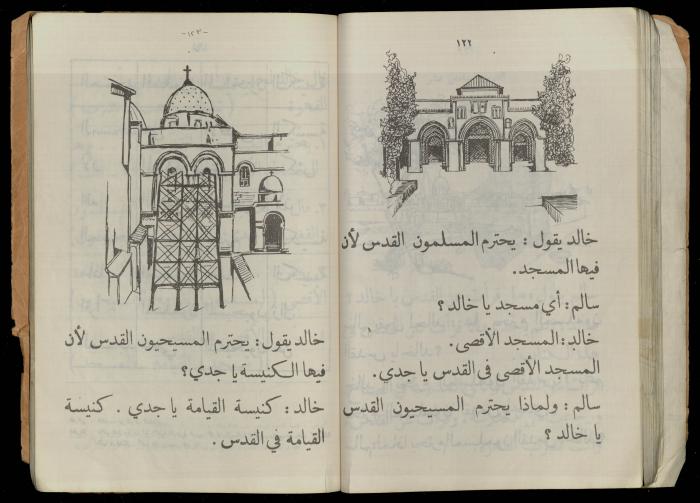 ١٢٢
خالد يقول : يحترم المسلمون القدس لأن
فيها المسجد.
سالم : أي مسجد يا خالد ؟
خالد : المسجد الأقصى.
المسجد الأقصى في القدس يا جدي.
سالم : ولماذا يحترم المسيحيون القدس
يا خالد ؟
-١٢٣-
خالد يقول : يحترم المسيحيون القدس لأن
فيها الكنيسة يا جدي ؟
خالد : كنيسة القيامة يا جدي . كنيسة
القيامة في القدس .